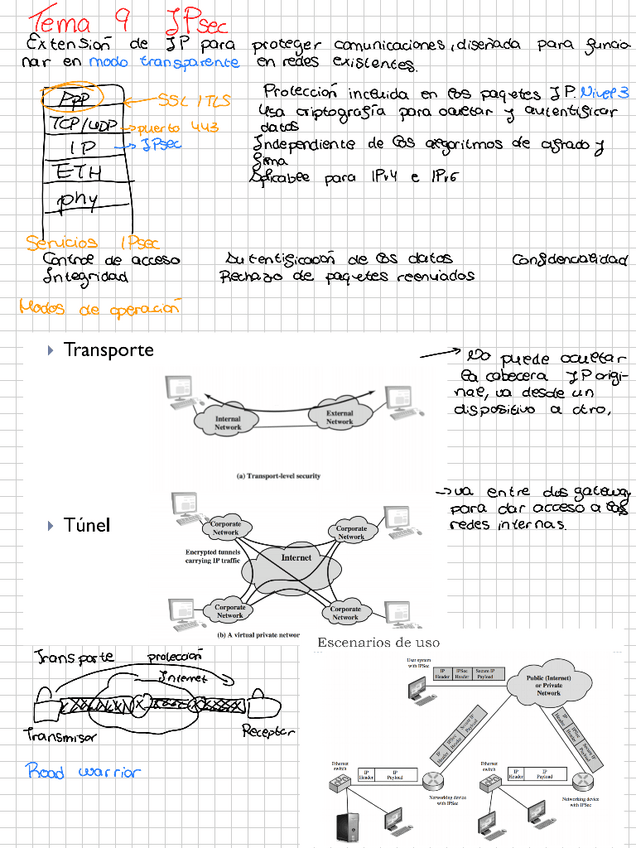 Tema 9 IPsec
Extensión de IP para proteger comunicaciones, diseñada para funcio
nar en modo transparente en redes existentes.
App
SSL / TLS
TCP/UDP
puerto 443
IP
IPsec
ETH
phy
Protección incluida en los paquetes IP. Nivel 3
Usa criptografía para ocultar y autentificar
datos
Independiente de los algoritmos de cifrado y
firma
Aplicable para IPv4 e IPv6
Servicios IPsec
Control de acceso Autentificación de los datos Confidencialidad
Integridad Rechazo de paquetes reenviados
Modos de operación
Transporte
No puede ocultar
la cabecera IP origi-
nal, va desde un
dispositivo a otro.
Internal
Network
External
Network
(a) Transport-level security
Túnel
va entre dos gateway
para dar acceso a las
redes internas.
Corporate
Network
Corporate
Network
Encrypted tunnels
carrying IP traffic
Internet
Corporate
Network
Corporate
Network
(b) A virtual private networ
Transporte protección
Internet
Transmisor
Receptor
Road warrior
Escenarios de uso
User system
with IPSec
IP
Header
IPSec
Header
Secure IP
Payload
Public (Internet)
or Private
Network
IP
Header
IPSec
Header
Secure IP
Payload
IP
Header
IPSec
Header
Secure IP
Payload
Ethernet
switch
IP
Header
IP
Payload
Networking device
with IPSec
Ethernet
switch
IP
Header
IP
Payload
Networking device
with IPSec